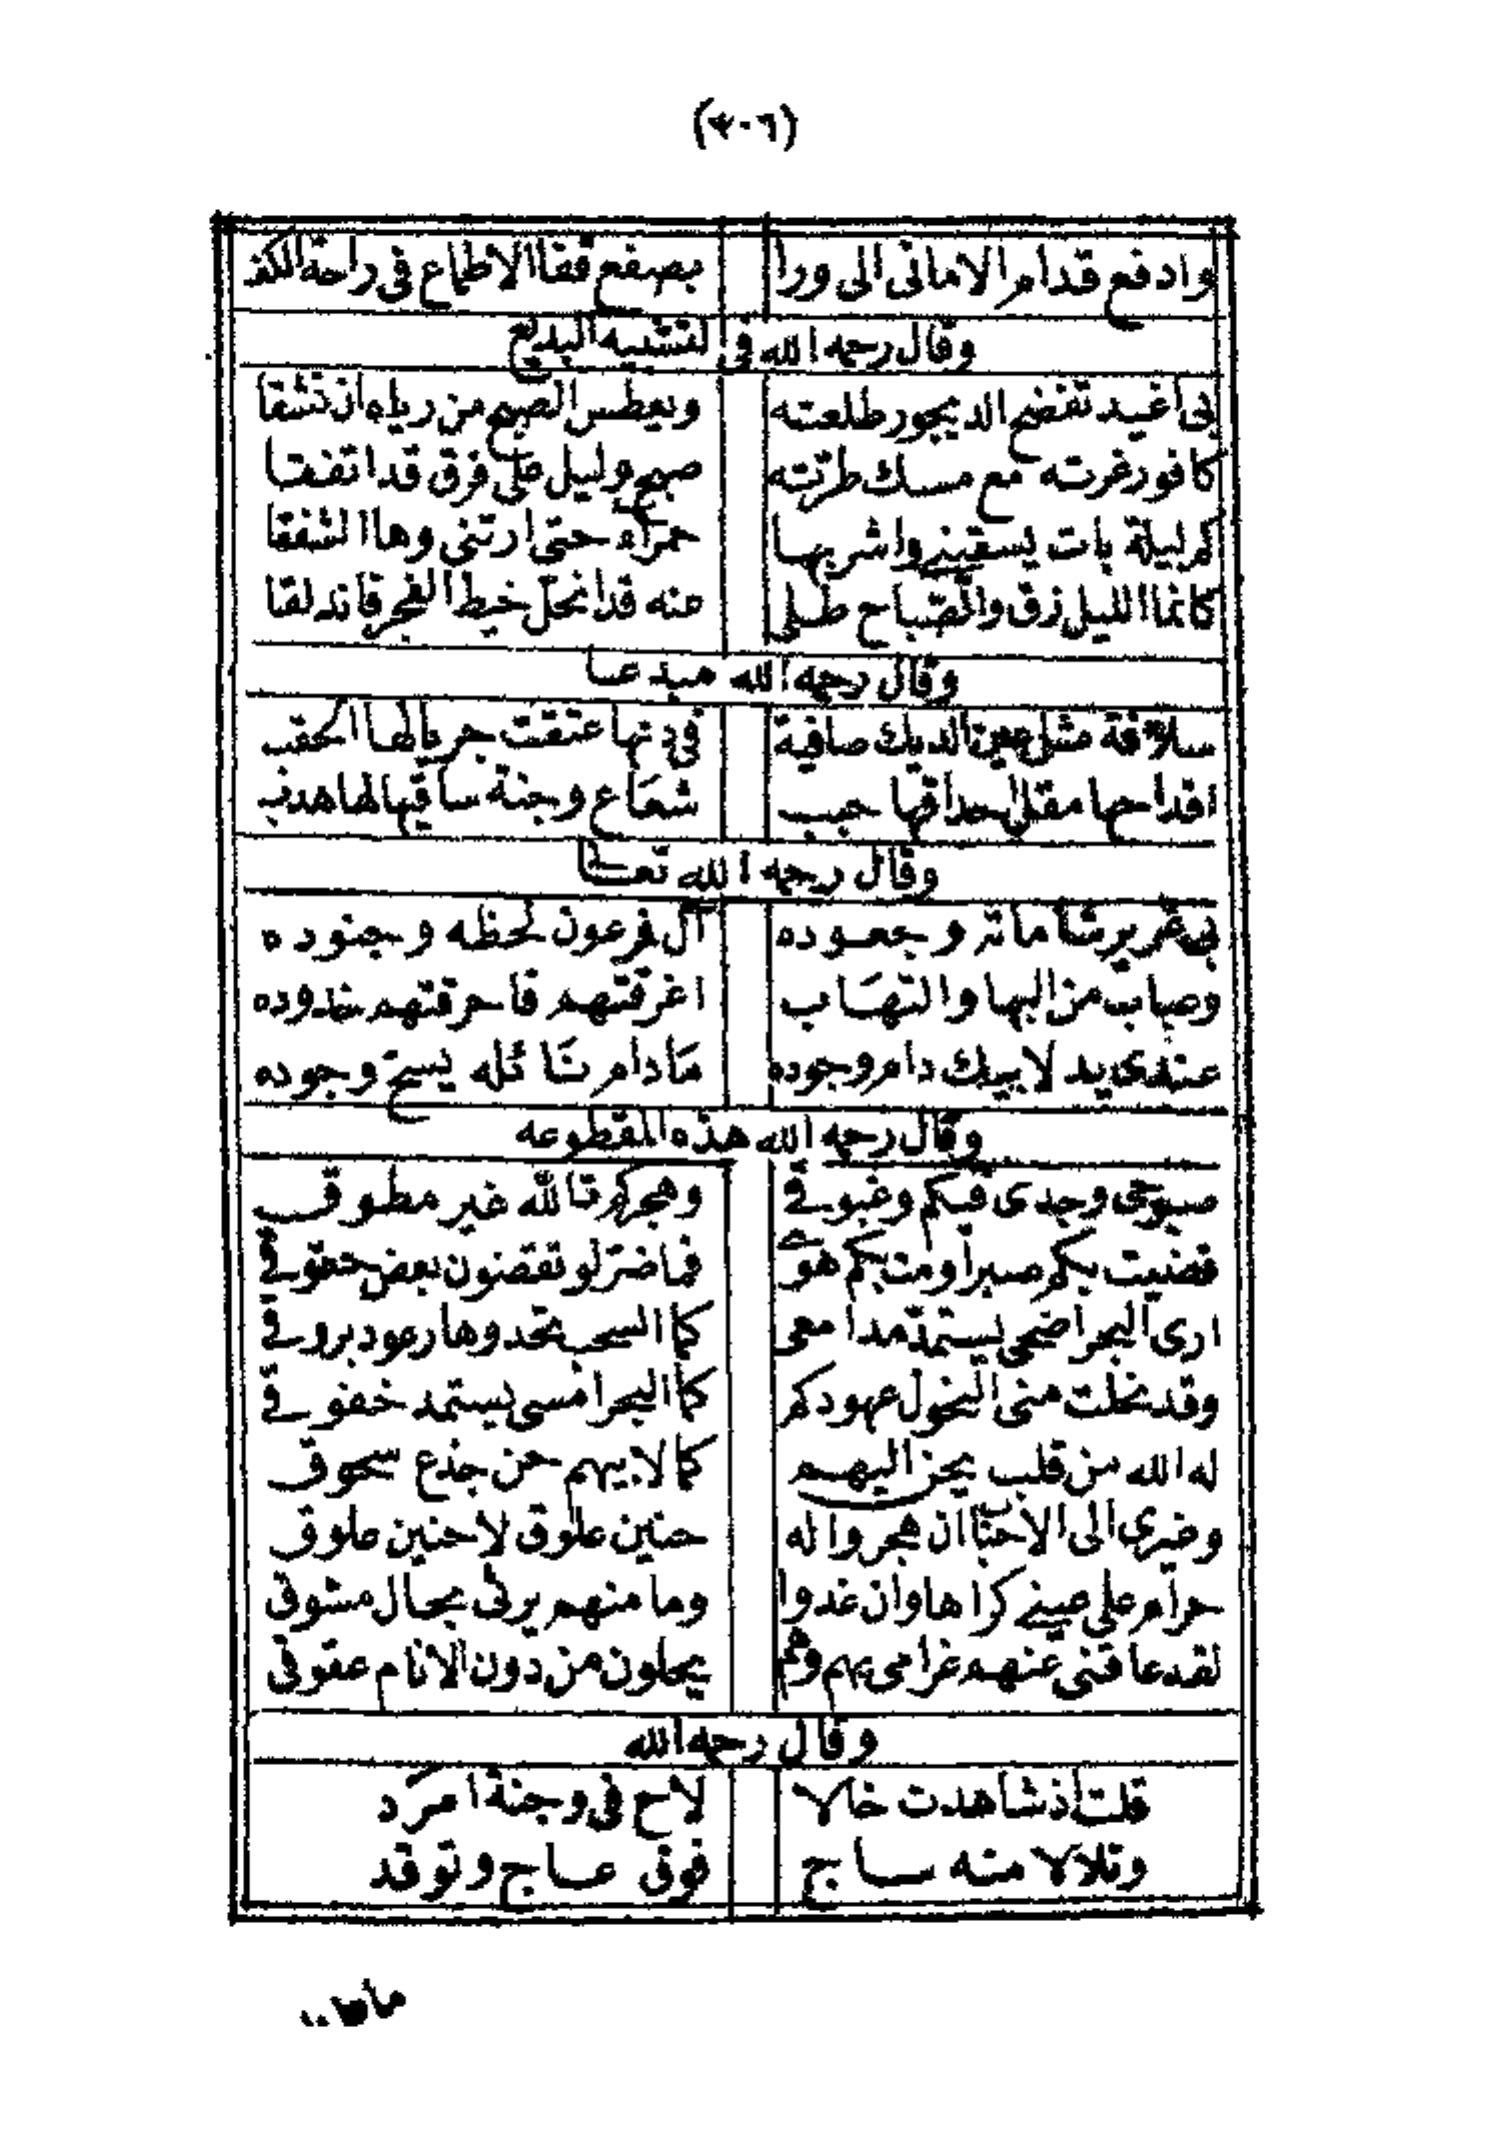 (٣٠٦)
وادفع قدام الامانى الى ورا بصفع قفا الاطماع فى راحة الكف
وقال رحمه الله فى لتشبيه البديع
بى اغيد تفضح الديجور طلعته ويعطس الصبح من رياه ان نشقا
كافور غرته مع مسك طرّته صبح وليل على فرق قد اتفقا
كم ليلة بات يسقينى واشربها حمراء حتى ارتنى وها الشفقا
كانما الليل زق والصّباح طلى عنه قد انحل خيط الفجر فاندلقا
وقال رحمه الله مبدعا
سلافة مثل عين الديك صافية فى دنها عتقت جريالها الحقب
اقداحها مقل احداقها حبب شعاع وجنة ساقيها لها هدب
وقال رحمه الله تعالى
بى غرير شاماته وجعوده آل فرعون لحظه وجنوده
وصباب من البها والتهاب اغرقتهم فاحرقتهم خدوده
عند يد لابيك دام وجوده مادام نائله يسح وجوده
وقال رحمه الله هذه المقطوعه
صبوحى وجدى فيكم وغبوقى وهجركم تالله غير مطوق
قضيت بكم صبرا ومت بكم هوى فما ضرّ لو تقضون بعض حقوقى
ارى البحر اضحى يستمدّ مدامعى كما السحب تحدوها رعود بروقى
وقد نحلت منى النحول عهودكم كما البحر امسى يستمد خفوقى
له الله من قلب يحن اليهم كما لابيهم حن جذع سحوق
وغيرى الى الاحباب ان هجروا له حنين علوق لا حنين علوق
حرام على عينى كراها وان غدوا وما منهم يرثى بحال مشوق
لقد عاقنى عنهم غرامى بهم وهم يحلون من دون الانام عقوقى
وقال رحمه الله
قلت اذ شاهدت خالا لاح فى وجنة امرد
وتلالا منه ساج فوق عاج وتوقد